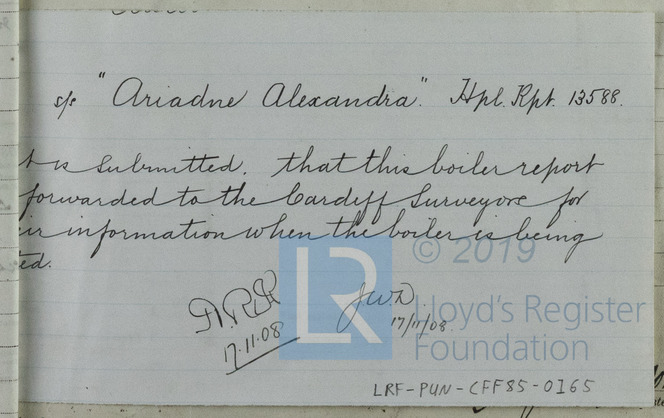 s/s "Ariadne Alexandra". Hpl. Rpt. 13588.
t is submitted, that this boiler report
forwarded to the Cardiff Surveyors for
ir information when the boiler is being
ted.
17.11.08
JWD
17/11/08
LR
© 2019
Lloyd's Register
Foundation
LRF-PUN-CFF85-0165